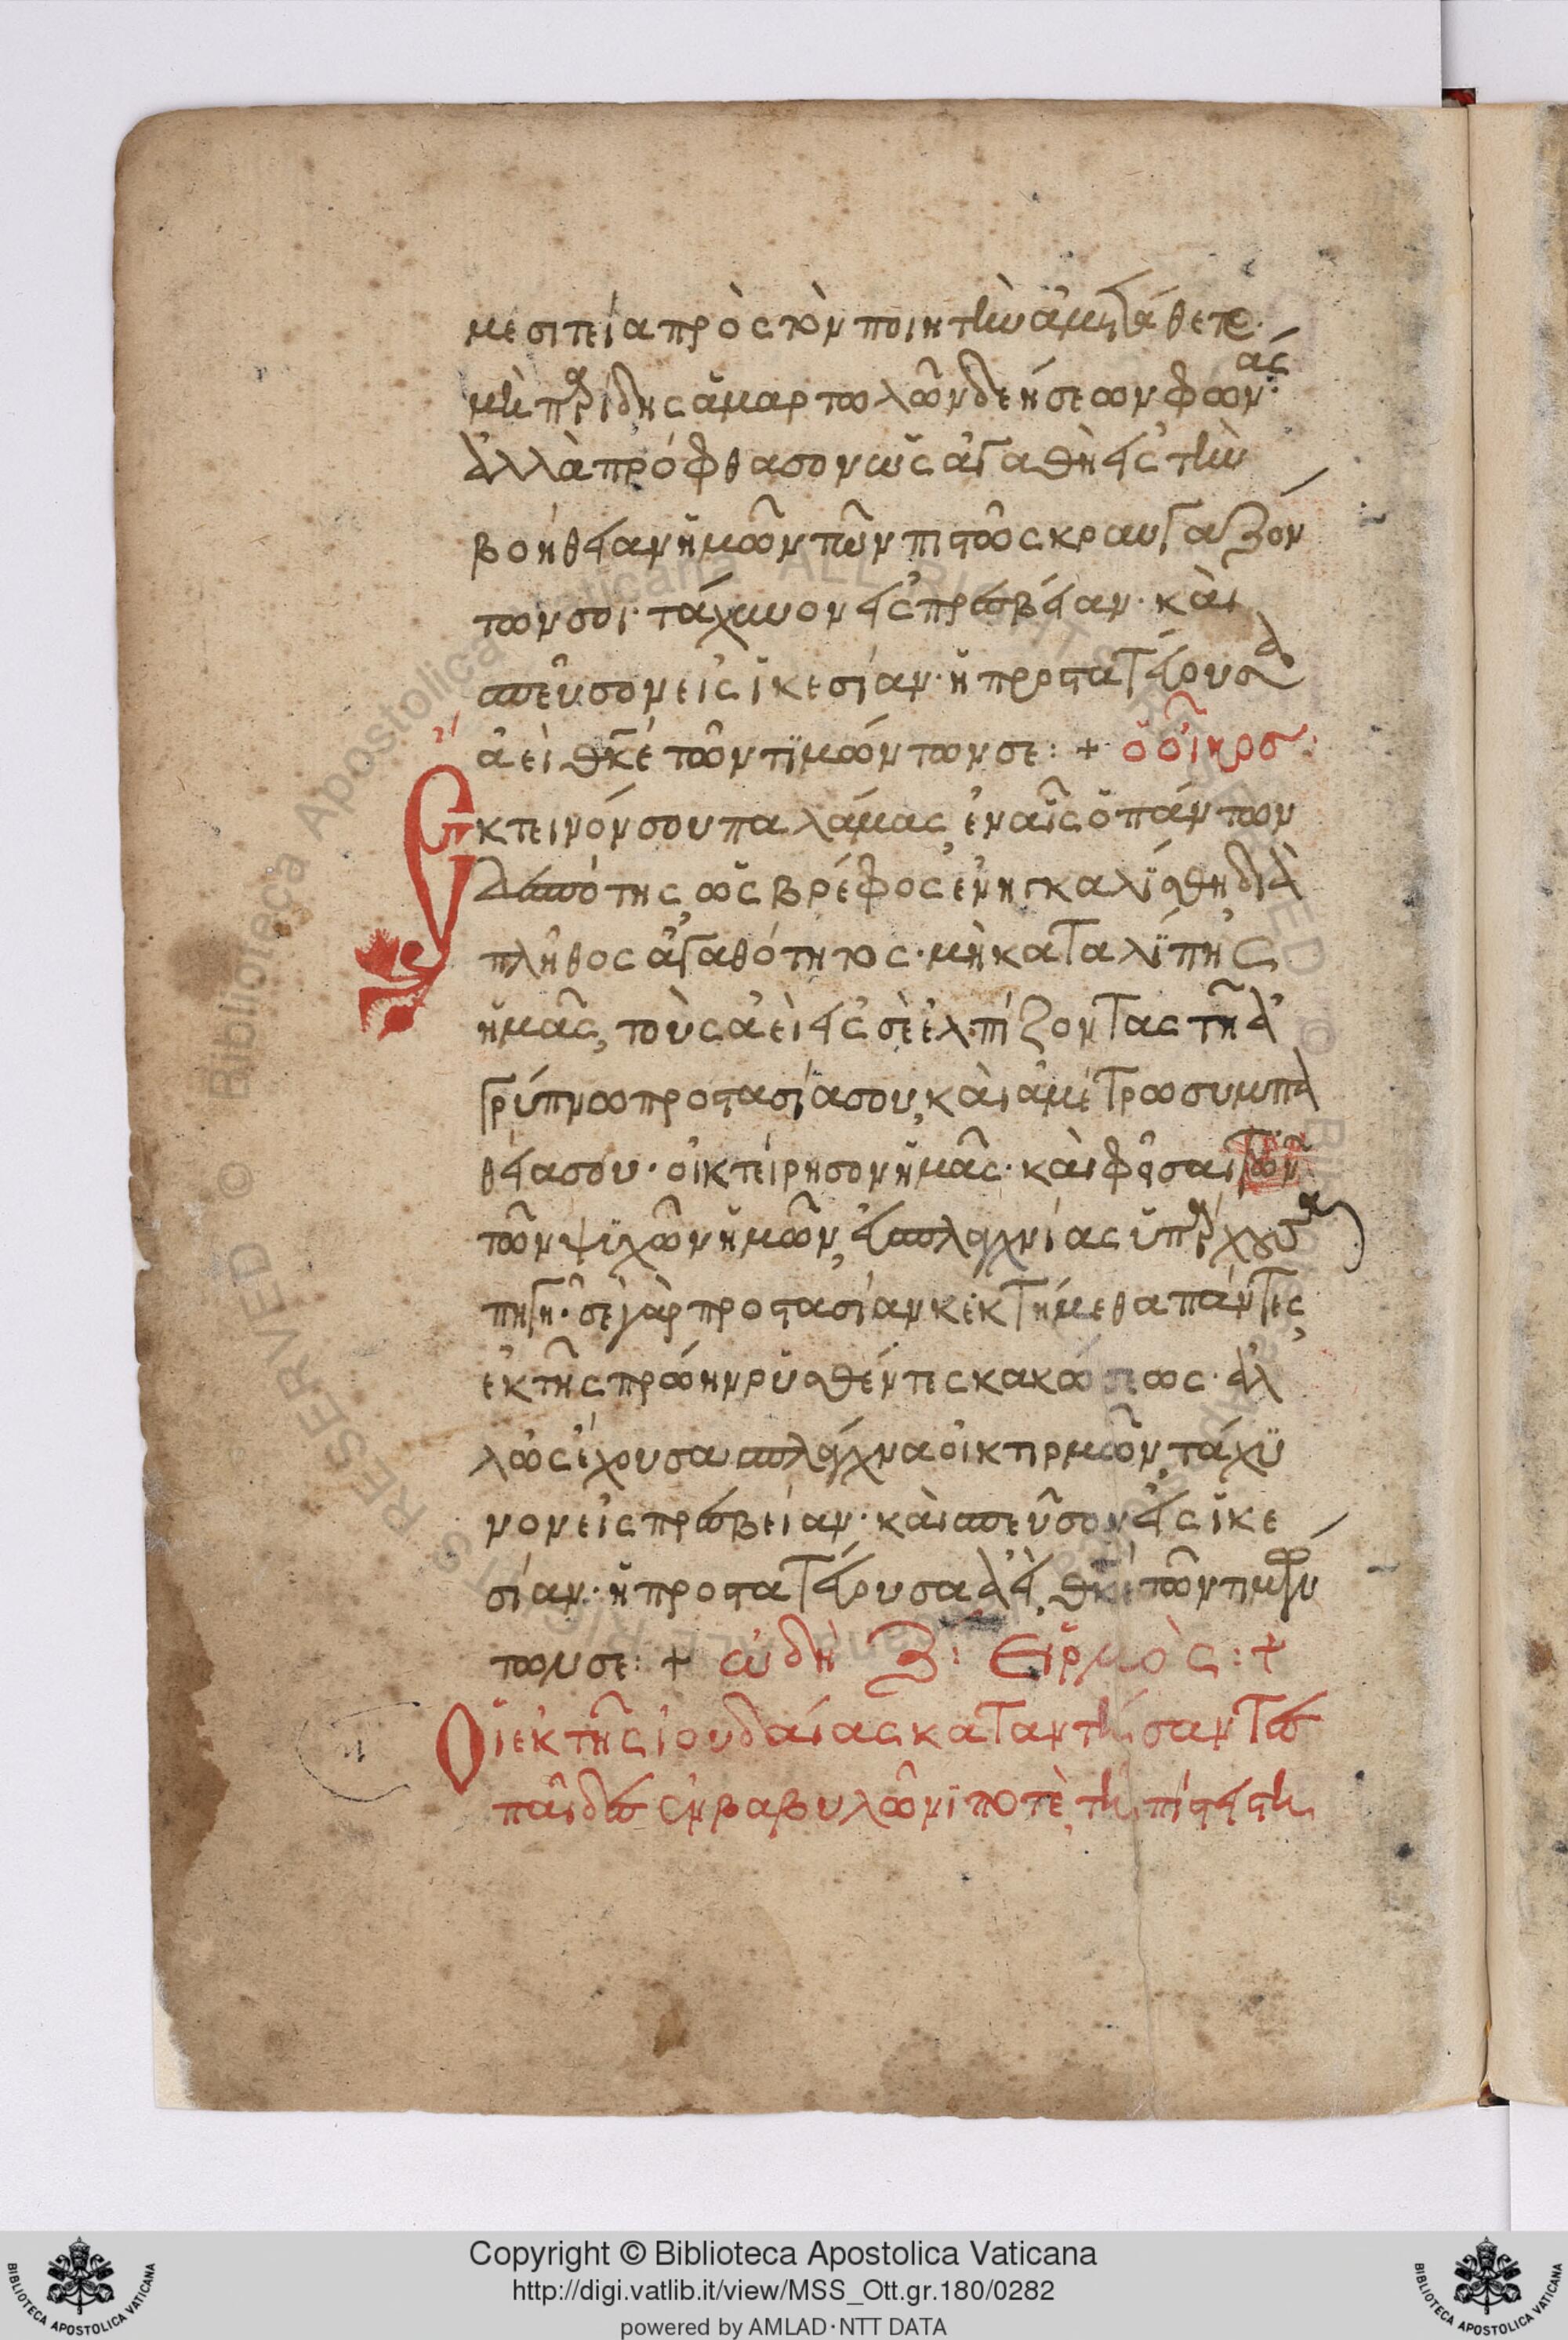 μεσιτεία πρὸς τὸν ποιητὴν ἀμετάθετε·
μὴ παρίδης ἁμαρτωλῶν δεήσεων φωνάς·
ἀλλὰ πρόφθασον ὡς ἀγαθὴ εἰς τὴν
βοήθειαν ἡμῶν τῶν πιστῶς κραυγαζόν
των σοι· τάχυνον εἰς πρεσβείαν· καὶ
σπεῦσον εἰς ἱκεσίαν· ἡ προστατεύουσα
ἀεὶ θκε τῶν τιμώντων σε: + ὁ οἶκος:
Εκτεινόν σου παλάμας, ἐν αἷς ὁ πάντων
δεσπότης, ὡς βρέφος ἐνηγκαλίσθη διὰ
πλῆθος ἀγαθότητος· μὴ καταλίπης
ἡμᾶς, τοὺς ἀεὶ εἰς σὲ ἐλπίζοντας τῆ ἀ
γρύπνω προστασία σου, καὶ ἀμέτρω συμπα
θεία σου· οἰκτείρησον ἡμᾶς· καὶ φεῖσαι
τῶν ψυχῶν ἡμῶν, εὐσπλαγχνίας ὑπάρχουσα
πηγή· σὲ γὰρ προστασίαν κεκτήμεθα πάντες,
ἐκ τῆς πρώην ρυσθέντες κακώσεως· ἀλ
λ' ὡς ἔχουσα σπλάγχνα οἰκτιρμῶν, τάχυ
νον εἰς πρεσβείαν· καὶ σπεῦσον εἰς ἱκε
σίαν· ἡ προστατεύουσα ἀεὶ, θκε τῶν τιμών
των σε: + ὠδὴ ζ: Εἱρμὸς: +
Οἱ ἐκ τῆς ἰουδαίας καταντήσαντες
παῖδες ἐν βαβυλῶνι ποτὲ, τῆ πίστει τῆ
Copyright © Biblioteca Apostolica Vaticana
http://digi.vatlib.it/view/MSS_Ott.gr.180/0282
powered by AMLAD·NTT DATA